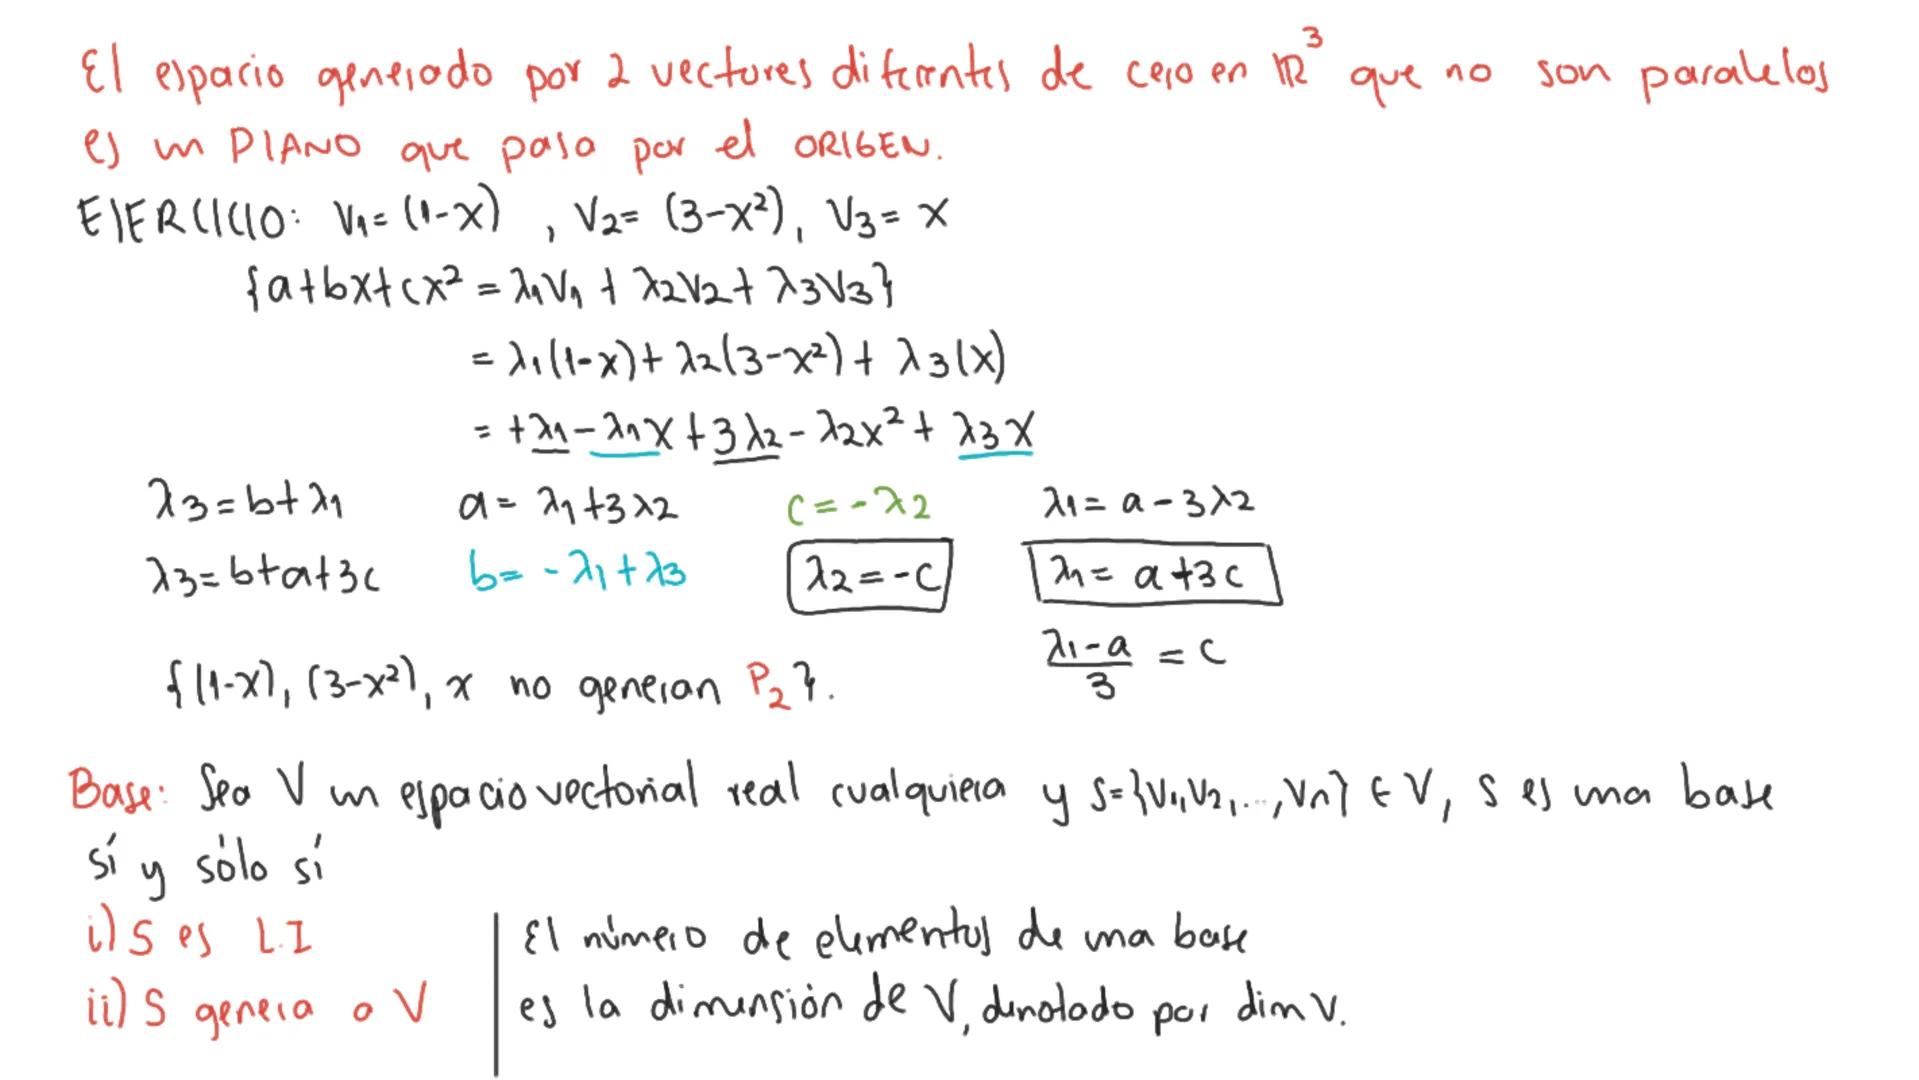 El espacio generado por 2 vectores diferentes de cero en ℝ³ que no son paralelos
es un PLANO que pasa por el ORIGEN.
EJERCICIO: V₁= (1-x) , V₂= (3-x²), V₃= x
{a+bx+cx² = λ₁V₁ + λ₂V₂ + λ₃V₃}
= λ₁(1-x) + λ₂(3-x²) + λ₃(x)
= +λ₁ - λ₁x + 3λ₂ - λ₂x² + λ₃x
λ₃ = b+λ₁ a = λ₁+3λ₂ c = -λ₂ λ₁ = a - 3λ₂
λ₃ = b+a+3c b = -λ₁+λ₃ λ₂ = -c λ₁ = a+3c
(λ₁-a)/3 = c
{(1-x), (3-x²), x no generan P₂}.
Base: Sea V un espacio vectorial real cualquiera y S={V₁,V₂,...,Vn} ∈ V, S es una base
sí y sólo sí
i) S es L.I
ii) S genera a V
El número de elementos de una base
es la dimensión de V, denotado por dim V.